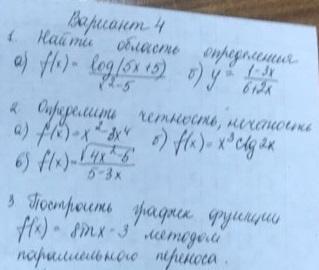 Вариант 4
1. Найти область определения
а) f(x) = log(5x+5) / x²-5 б) y = 1-3x / 6+2x
2 Определить четность, нечетность
а) f(x) = x² - 8x⁴ б) f(x) = x³ctg2x
в) f(x) = √4x²-6 / 5-3x
3 Построить график функции
f(x) = sinx - 3 методом
параллельного переноса.